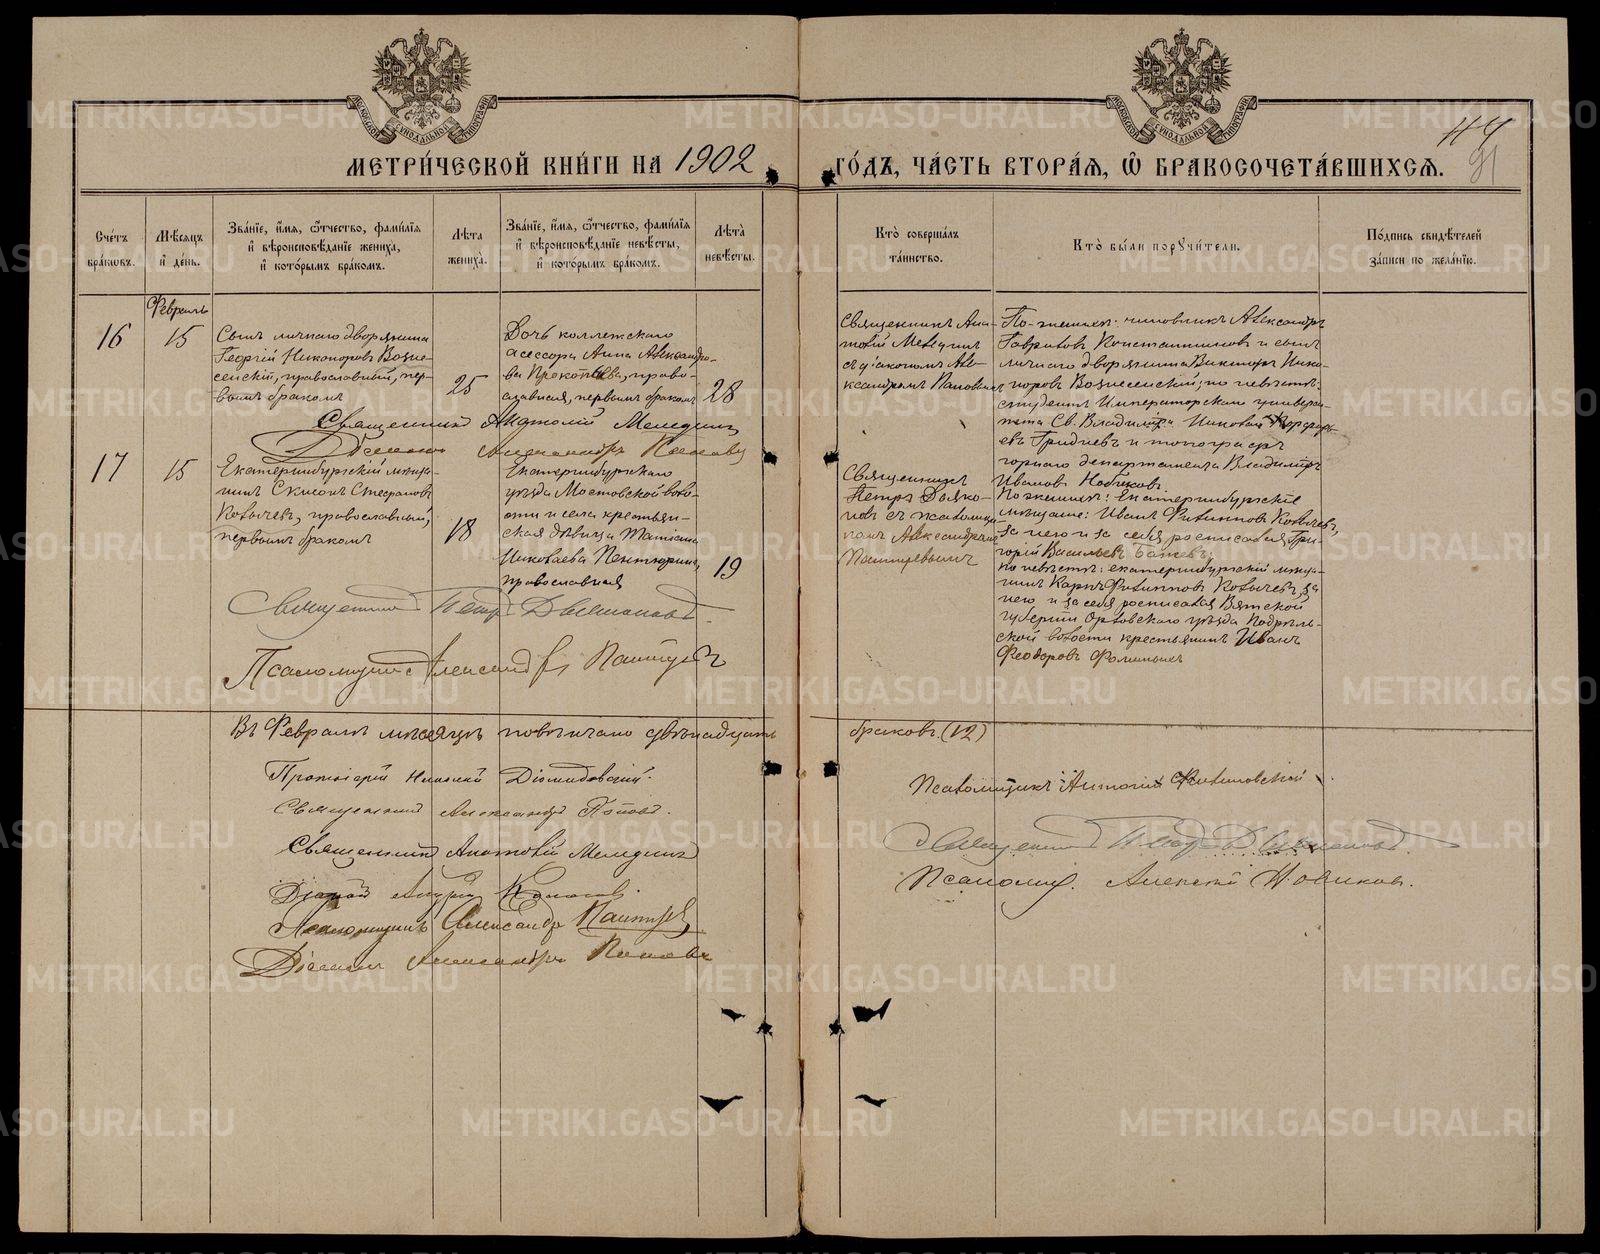 МЕТРИ́ЧЕСКОЙ КНИ́ГИ НА 1902 ГО́ДЪ, ЧА́СТЬ ВТОРА́Я, Ѽ БРАКОСОЧЕТА́ВШИХСЯ.
44
91
Сче́тъ бра́ковъ.
Мѣ́сяцъ и́ де́нь.
Зва́нїе, и́мя, о́тчество, фами́лїя
и́ вѣроисповѣ́данїе жениха̀,
и́ кото́рымъ бра́комъ.
Лѣ́та жениха̀.
Зва́нїе, и́мя, о́тчество, фами́лїя
и́ вѣроисповѣ́данїе невѣ́сты,
и́ кото́рымъ бра́комъ.
Лѣ́та невѣ́сты.
Кто̀ соверша́лъ
та́инство.
Кто̀ бы́ли поручи́тели.
По́дпись свидѣ́телей
за́писи по жела́нїю.
Февраль
16
15
Сынъ личнаго дворянина
Георгій Никаноровъ Возне-
сенскій, православный, пер-
вымъ бракомъ
25
Дочь коллежскаго
асессора Анна Александро-
ва Прокопьева, право-
славная, первымъ бракомъ
28
Священникъ Анатолій Меледин
Діаконъ Александръ Поповъ
Священникъ Ана-
толій Мелединъ
съ діакономъ Але-
ксандромъ Поповымъ
По женихѣ: чиновникъ Александръ
Гавриловъ Константиновъ и сынъ
личнаго дворянина Викторъ Нико-
норовъ Вознесенскій; по невѣстѣ:
студентъ Императорскаго универси-
тета Св. Владиміра Николай
Гридневъ и топографъ
горнаго департамента Владиміръ
Ивановъ Новиковъ.
17
15
Екатеринбургскій мѣща-
нинъ Симонъ Стефановъ
Ковычевъ, православный,
первымъ бракомъ
18
Екатеринбургскаго
уѣзда Мостовской воло-
сти и села крестьян-
ская дѣвица Татіана
Николаева Пентюрина,
православная
19
Священникъ Петръ Дьяконовъ
Псаломщикъ Александръ
Священникъ
Петръ Дьяко-
новъ съ псаломщи-
комъ Александромъ
По женихѣ: Екатеринбургскіе
мѣщане: Иванъ Филипповъ Ковычевъ,
за него и за себя росписался Гри-
горій Васильевъ
по невѣстѣ: екатеринбургскій мѣща-
нинъ Карпъ Филипповъ Ковычевъ, за
него и за себя росписался Вятской
губерніи Орловскаго уѣзда Подрѣль-
ской волости крестьянинъ Иванъ
Феодоровъ
Въ Февралѣ мѣсяцѣ повѣнчано двѣнадцать браковъ (12)
Протоіерей Николай Діомидовскій.
Священникъ Александръ Поповъ.
Священникъ Анатолій Мелединъ
Діаконъ Андрей
Псаломщикъ Александръ
Діаконъ Александръ Поповъ
Псаломщикъ Антоній Филиповскій
Священникъ Петръ Дьяконовъ
Псаломщ. Алексѣй Новиков.
METRIKI.GASO-URAL.RU